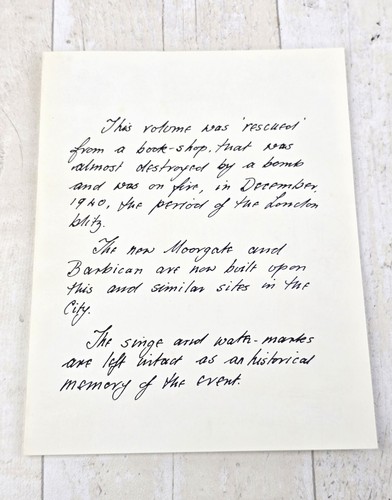 This volume was 'rescued'
from a book-shop, that was
almost destroyed by a bomb
and was on fire, in December,
1940, the period of the London
blitz.
The new Moorgate and
Barbican are now built upon
this and similar sites in the
City.
The singe and water-marks
are left intact as an historical
memory of the event.